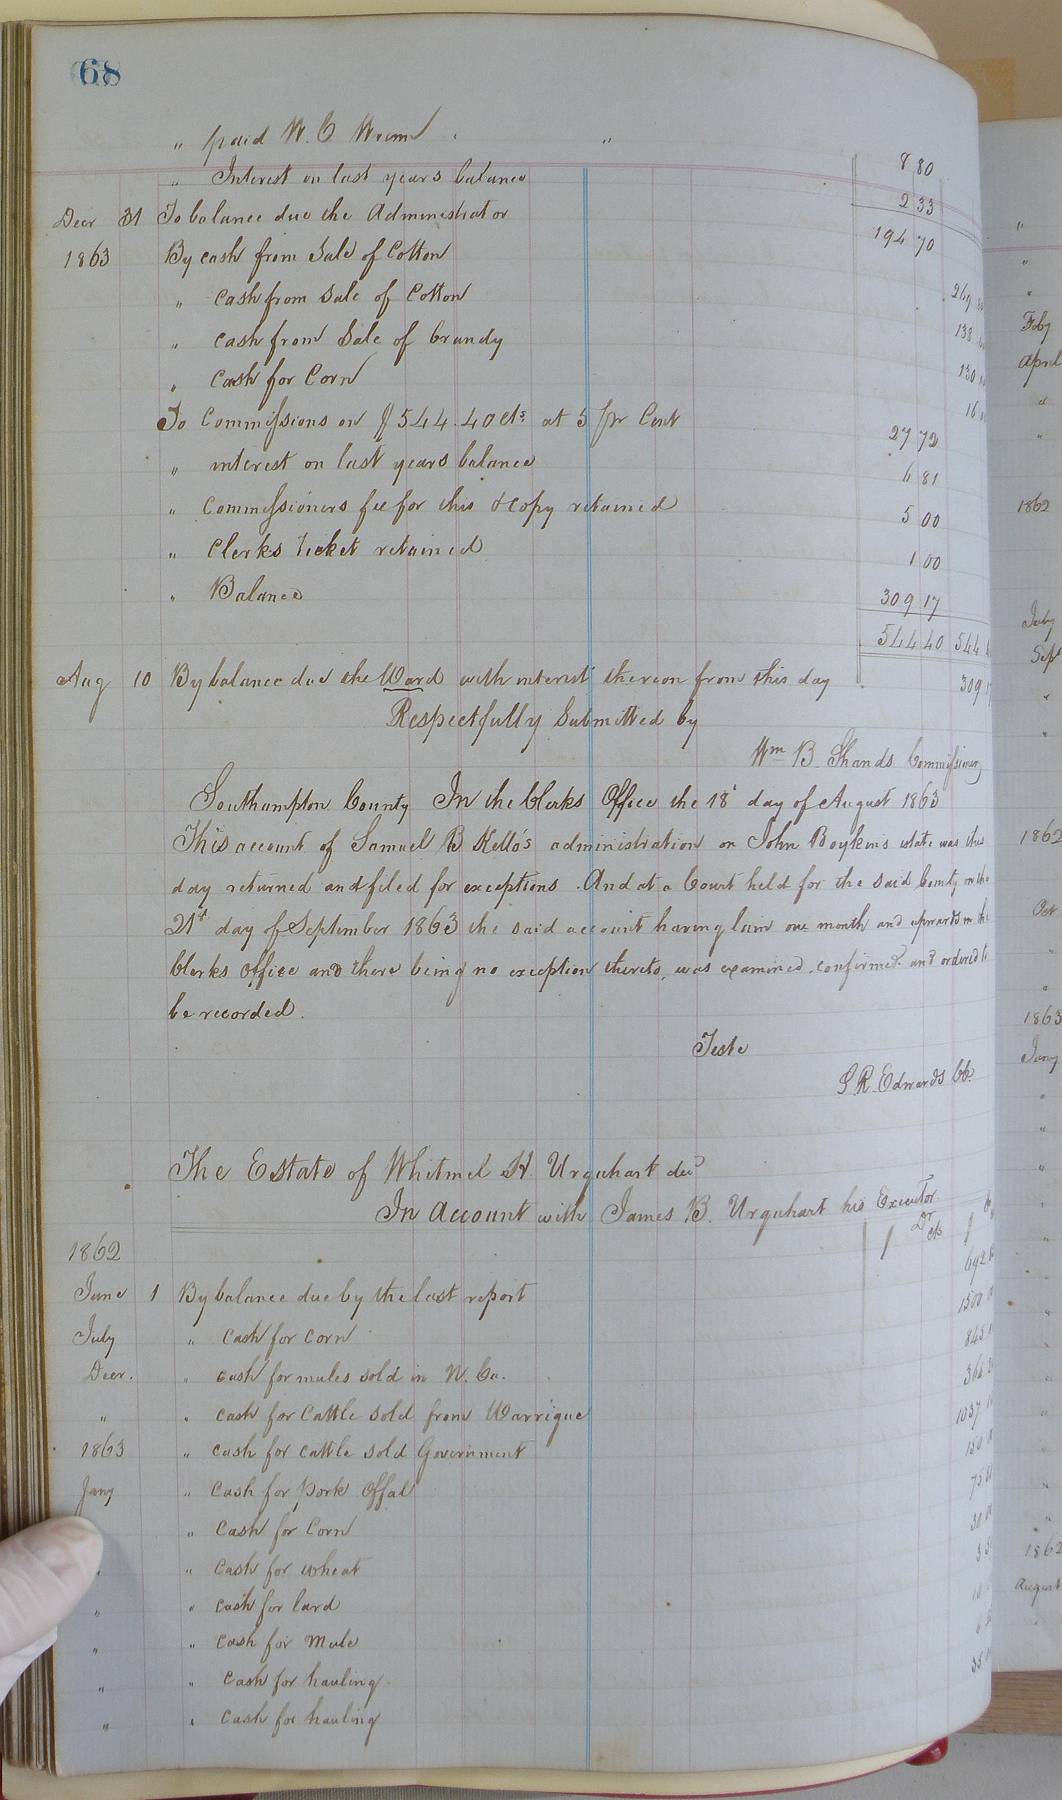 68
" paid W. C. "
" Interest on last years balance 8 80
Decr 31 To balance due the Administrator 2 33
1863 By cash from Sale of Cotton 194 70
" cash from sale of Cotton
" cash from Sale of brandy 138
" Cash for Corn 130
To Commissions on $544.40 cts at 5 pr Cent 16
" interest on last years balance 27 72
" Commissioners fee for this & copy retained 6 81
" Clerks Ticket retained 5 00
" Balance 1 00
309 17
544 40 544
Aug 10 By balance due the Ward with interest thereon from this day 309
Respectfully Submitted by
Wm B. Shands Commissioner
Southampton County In the Clerks Office the 18 day of August 1863
This account of Samuel B Kello's administration on John Boykins estate was this
day returned and filed for exceptions. And at a Court held for the said County on the
21st day of September 1863 the said account having lain one month and upwards in the
Clerks Office and there being no exception thereto, was examined confirmed and ordered to
be recorded.
Teste
Edwards Ck
The Estate of Whitmel H. Urquhart decd
In Account with James B. Urquhart his Executor
Dr
$ cts $
1862
June 1 By balance due by the last report 692
July " Cash for Corn 1500
Decr. " cash for mules sold in N. Ca. 845
" " cash for Cattle sold from Warrique 364
1863 " cash for cattle sold Government 1037
Jany " Cash for pork Offal 150
" Cash for Corn 75
" " Cash for wheat 30
" " cash for lard 3
" " cash for Mule
" " Cash for hauling
" " Cash for hauling 35
Feby
April
1862
July
Sept
1862
Oct
1863
Jany
1862
August